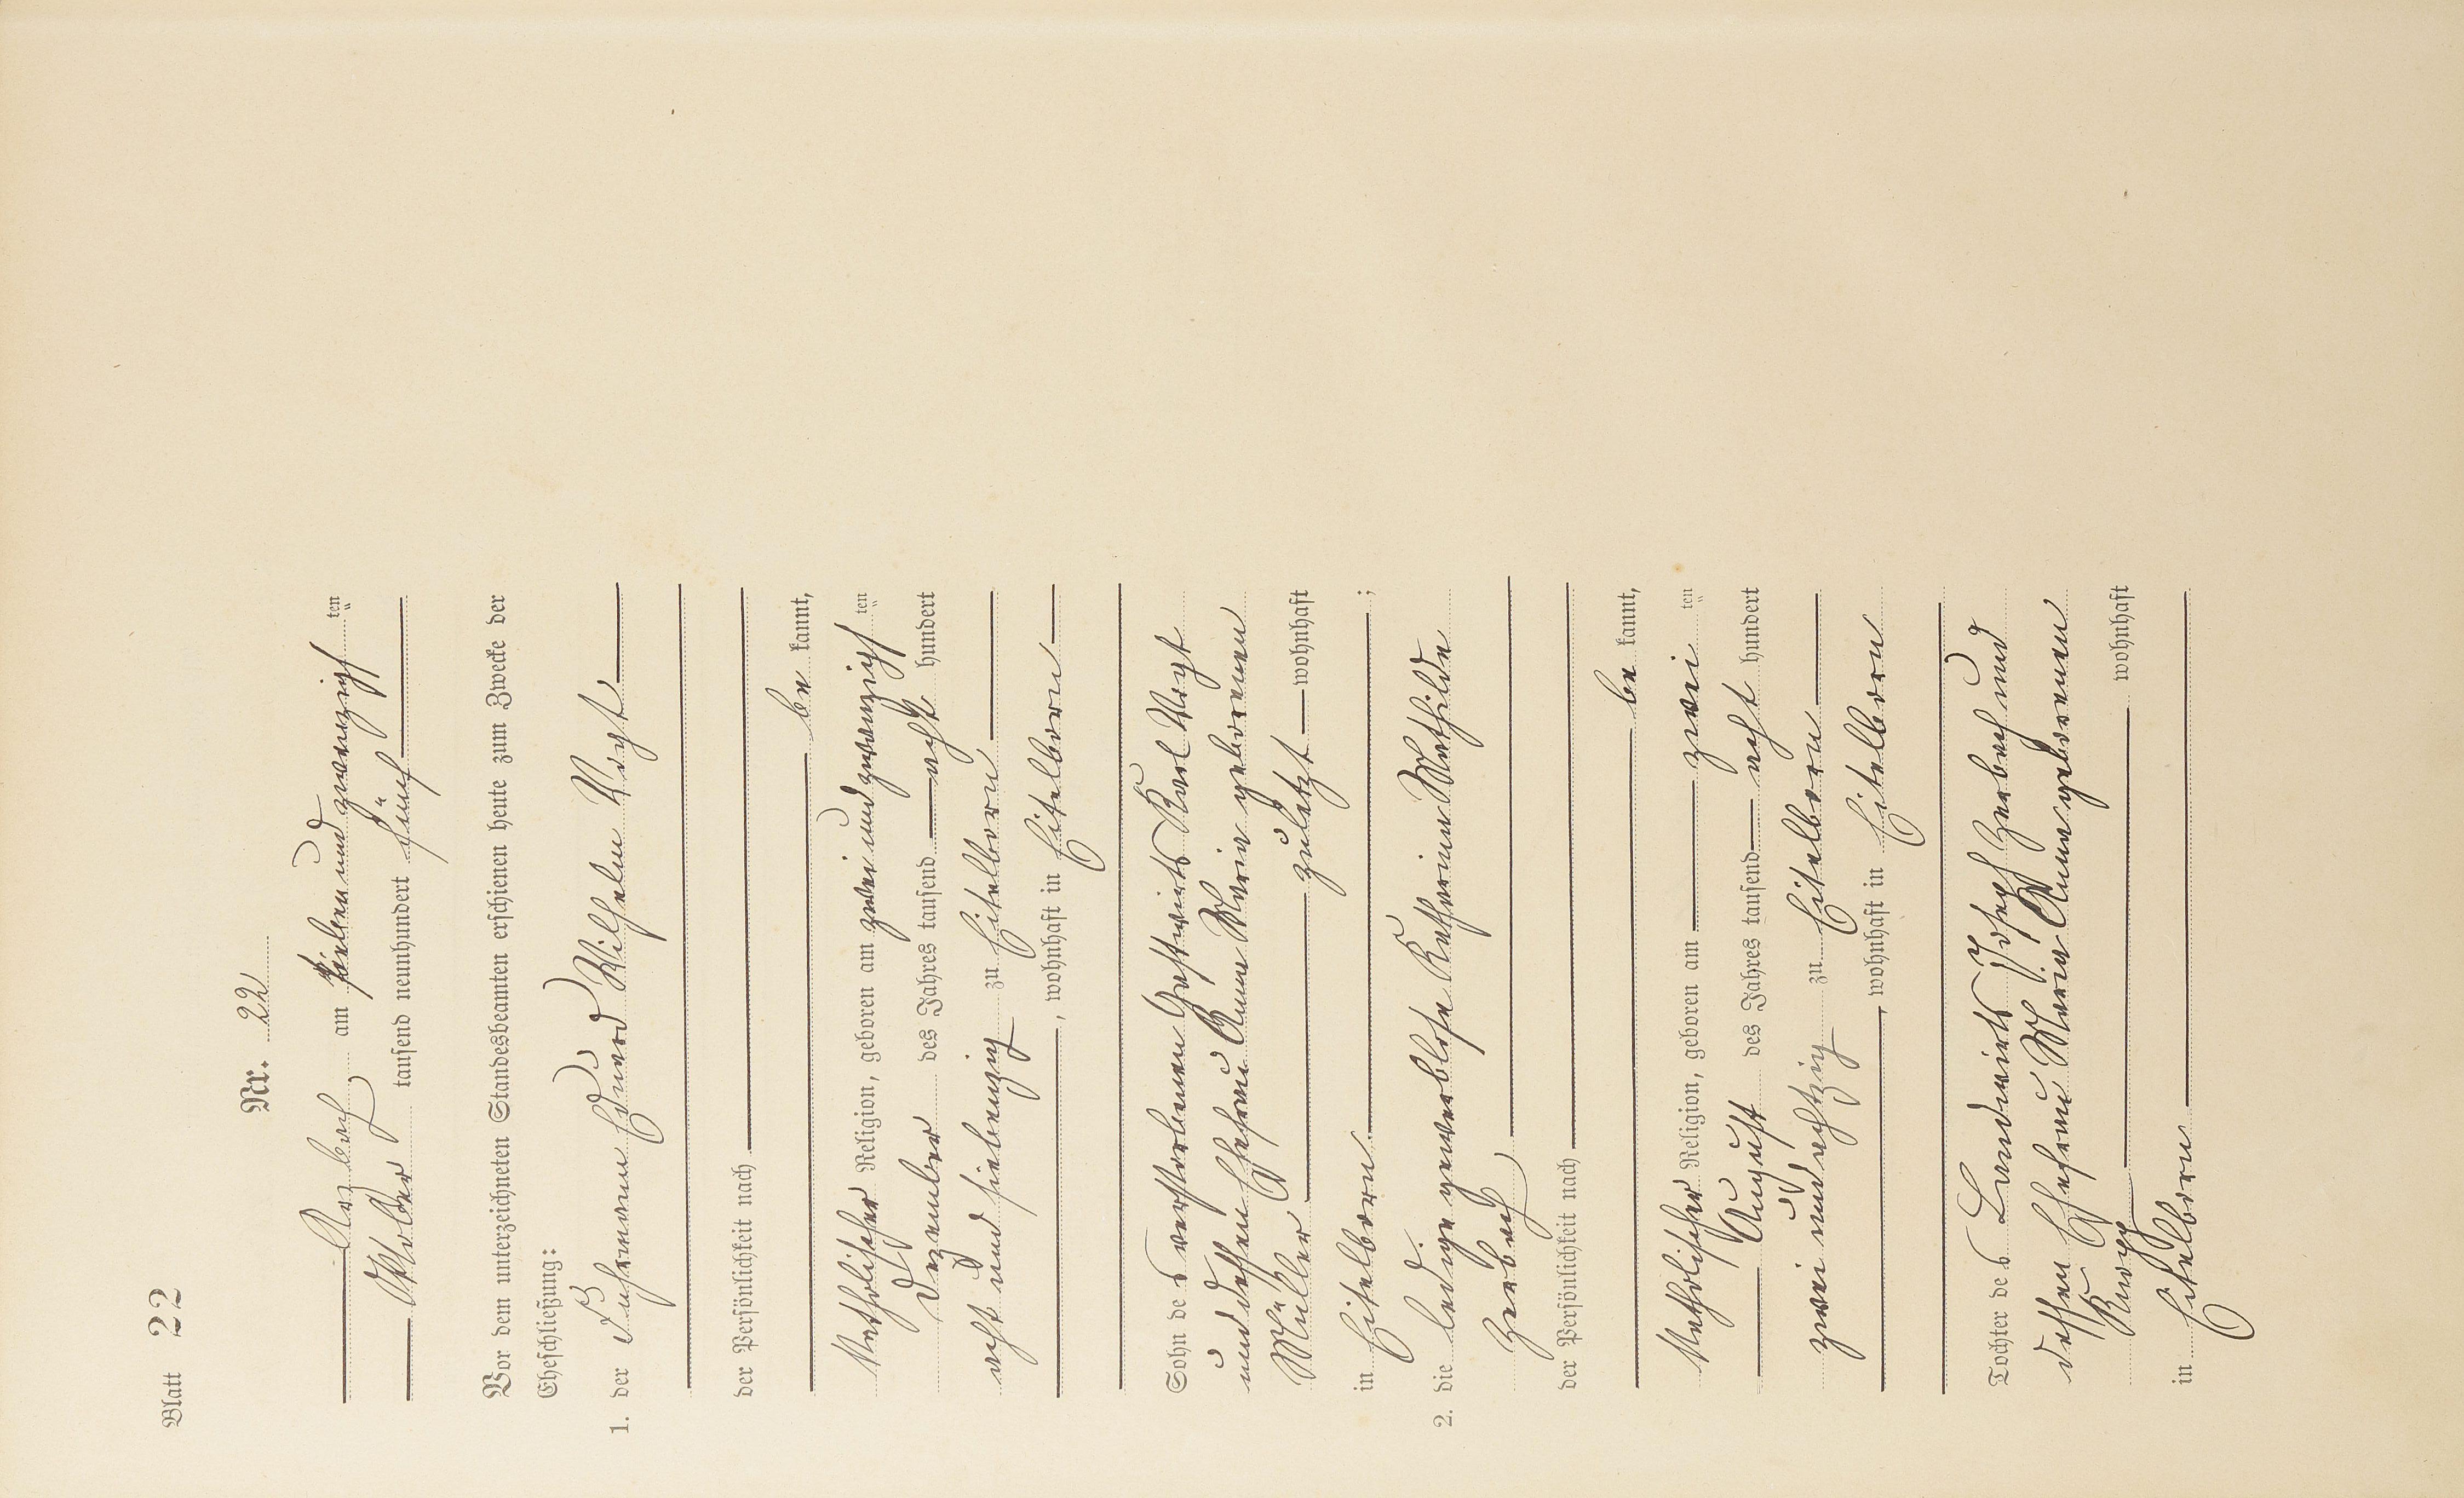 Blatt 22
Nr. 22
Arzbach, am siebenundzwanzigsten
Oktober tausend neunhundert fünf
Vor dem unterzeichneten Standesbeamten erschienen heute zum Zwecke der
Eheschließung:
1. der Fuhrmann Eduard Wilhelm Vogt
der Persönlichkeit nach
be kannt,
katholischer Religion, geboren am zweiundzwanzigsten
Dezember des Jahres tausend acht hundert
acht und siebenzig zu Eitelborn
, wohnhaft in Eitelborn
Sohn des verstorbenen Gastwirts Karl Vogt
und dessen Ehefrau Anna Maria geborenen
Müller zuletzt wohnhaft
in Eitelborn ;
2. die ledige gewerblose Katharina Mathilde
Zerbach
der Persönlichkeit nach
be kannt,
katholischer Religion, geboren am zwei ten
August des Jahres tausend acht hundert
zwei und achtzig zu Eitelborn
, wohnhaft in Eitelborn
Tochter des Landwirts Josef Zerbach und
dessen Ehefrau Maria Anna geborenen
wohnhaft
in Eitelborn